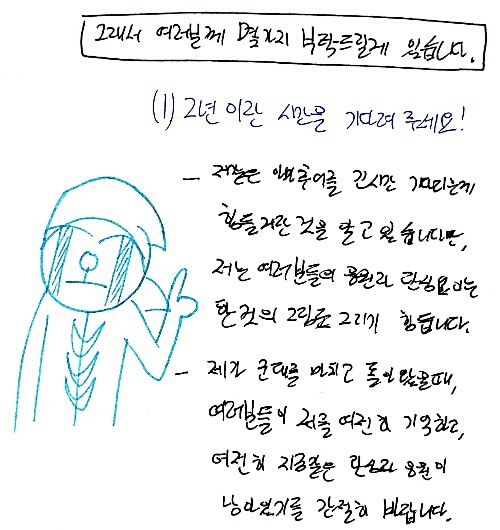 그래서 여러분께 몇가지 부탁드릴게 있습니다.
(1) 2년이란 시간을 기다려 주세요!
- 저놈은 긴시간 기다리는게
힘들거란 것을 알고 있습니다만,
저는 여러분들의 응원과 관심없이는
한 컷의 그림도 그리기 힘듭니다.
- 제가 군대를 마치고 돌아왔을때,
여러분들이 저를 여전히 기억하고,
여전히 지금같은 관심과 응원이
남아있기를 간절히 바랍니다.